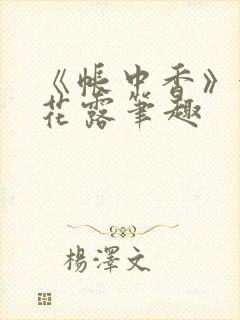 《帳中香》
花露筆趣
楊澤文